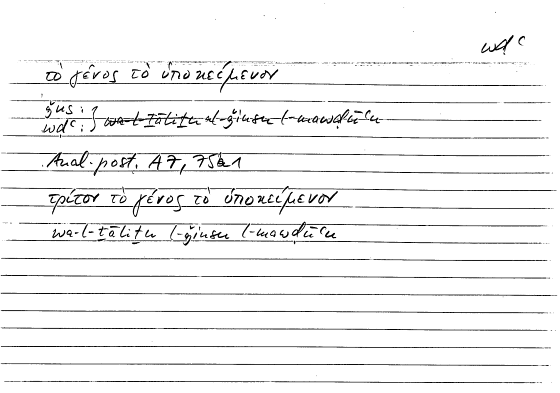 wḍʿ
τὸ γένος τὸ ὑποκείμενον
ǧns :
wḍʿ : } wa-l-ṯāliṯu al-ǧinsu l-mawḍūʿu
Anal. post. A7, 75a1
τρίτον τὸ γένος τὸ ὑποκείμενον
wa-l-ṯāliṯu l-ǧinsu l-mawḍūʿu